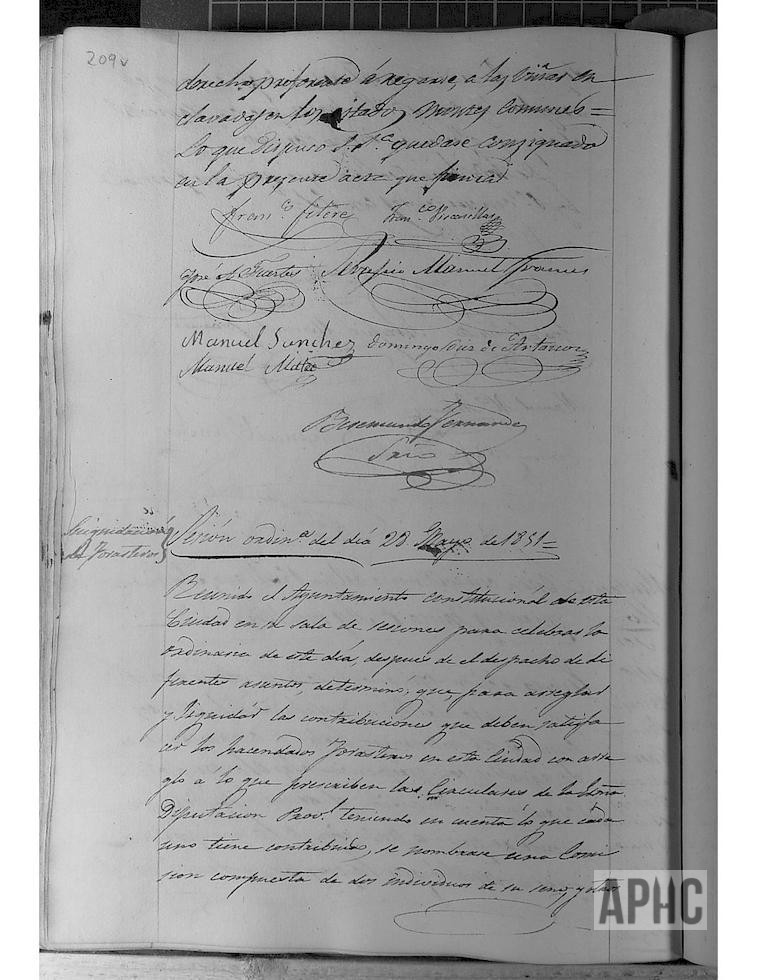 209v
derecho preferente á regarse, a las viñas en
clavadas en los citados montes comunes=
Lo que dispuso S. Sª quedase consignado
en la presente acta que firma
Franco. Fitero Franco. Vicarillas
José Fuertes Manuel Frances
Manuel Sanchez Domingo Ruiz de Artacoz
Manuel Mateo
Beremundo Fernandez
Srio
Liquidacion
de Forasteros
Sesión ordina. del día 28 Mayo de 1851=
Reunido el Ayuntamiento constitucional de esta
Ciudad en su sala de sesiones para celebrar la
ordinaria de este día, despues de el despacho de di
ferentes asuntos, determinó; que, para arreglar
y liquidar las contribuciones que deben satisfa
cer los hacendados Forasteros en esta Ciudad con arre
glo a lo que prescriben las Circulares de la Exma.
Diputacion Provl. teniendo en cuenta lo que cada
uno tiene contribuido, se nombrase una Comi
sion compuesta de dos individuos de su seno, y otros
APHC